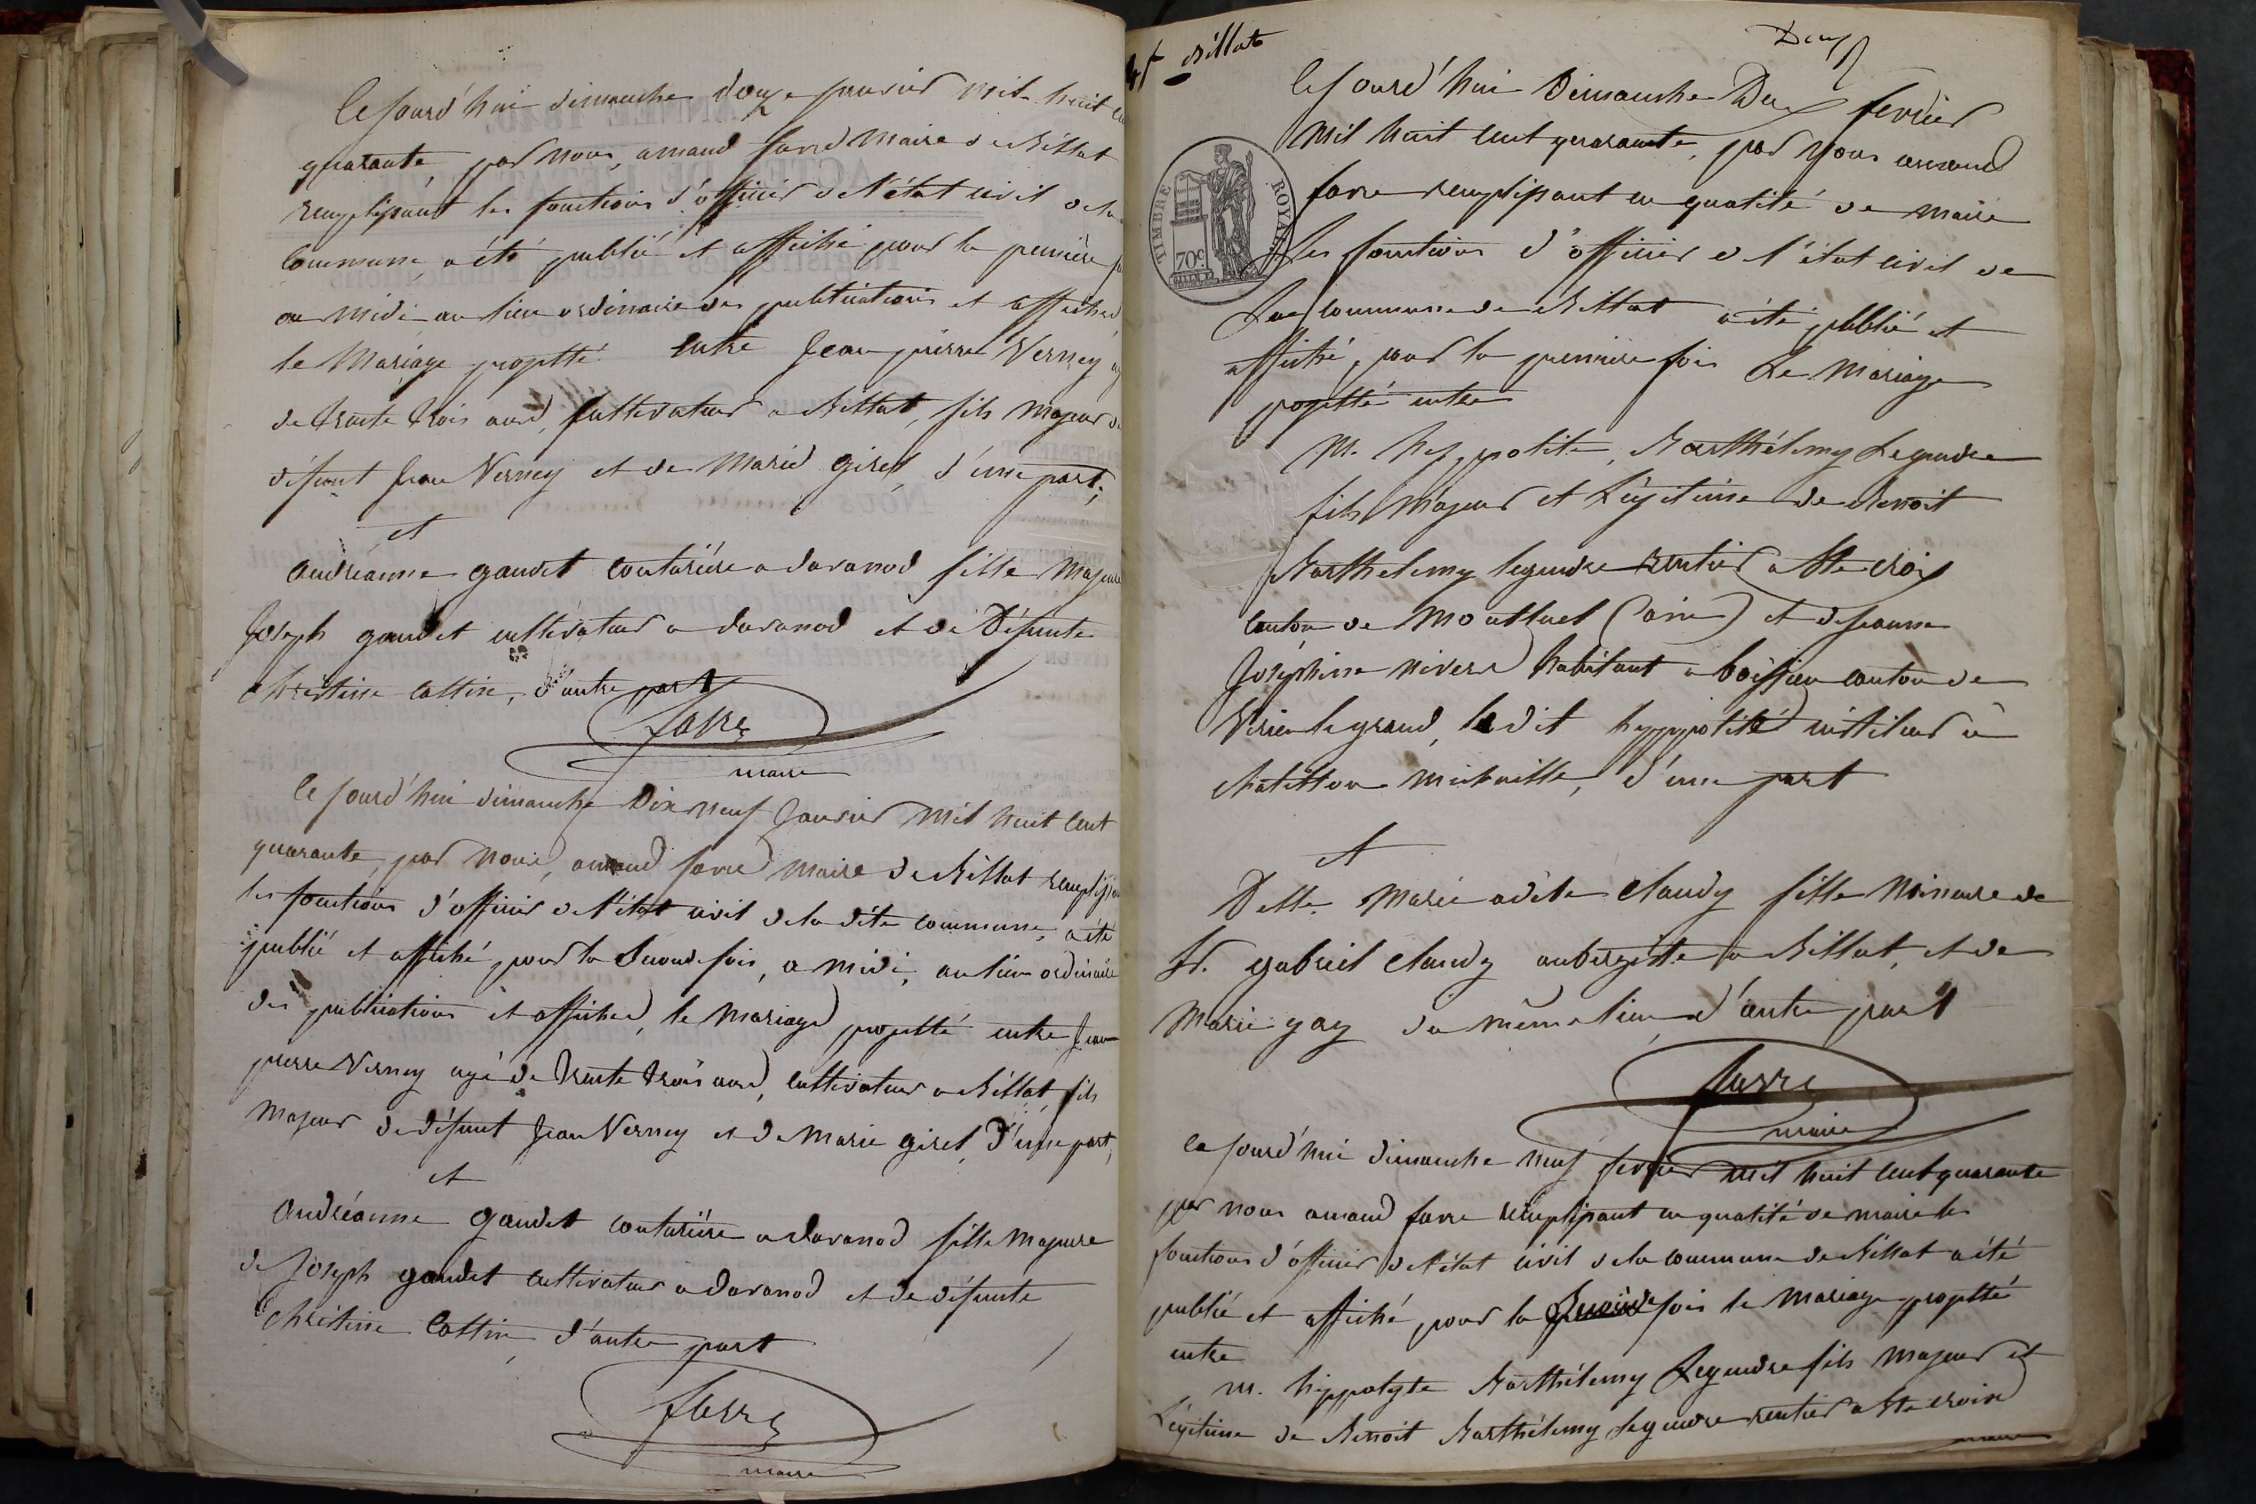 Cejourd'hui dimanche douze janvier mil huit cent
quarante, par nous, amand favre maire de Billiat
remplissant les fonctions d'officier de l'état civil de la
Commune, a été publié et affiché pour la première fois
a midi au lieu ordinaire des publications et affiches
le Mariage projetté entre Jean pierre Verney agé
de trente trois ans, Cultivateur a Billiat, fils Majeur de
défunt Jean Verney et de Marie giret, d'une part;
et
andréanne gaudet couturière a davanod fille Majeure
Joseph gaudet cultivateur a davanod et de Défunte
christine cattin, d'autre part
favre
maire
Cejourd'hui dimanche Dix neuf Janvier Mil huit Cent
quarante, par Nous, amand favre maire de Billiat remplissant
les fonctions d'officier de l'état civil de la dite commune, a été
publié et affiché pour la Seconde fois, a midi, au lieu ordinaire
des publications et affiches, le Mariage projetté entre Jean
pierre Verney agé de trente trois ans, cultivateur a Billiat, fils
Majeur de défunt Jean Verney et de Marie giret, d'une part,
et
andréanne gaudet couturière a davanod fille Majeure
de Joseph gaudet cultivateur a davanod et de défunte
christine Cattin, d'autre part
favre
maire
Billiat
Deux
Cejourd'hui Dimanche Deux fevrier
Mil huit cent quarante, par Nous amand
favre remplissant en qualité de maire
Les fonctions d'officier de l'état civil de
La commune de Billiat a été publié et
affiché, pour la premiere fois Le Mariage
projetté entre
M. hyppolite, Barthélemy Legendre
fils Majeur et Légitime de Benoit
Barthelemy legendre rentier a Ste Croix
Canton de Montluel (ain) et de jeanne
Joséphine nivere habitant a boissieu canton de
Virieu le grand, le dit hyppolite instituteur à
chatillon michaille, d'une part
et
Delle. Marie adèle claudy fille Mineure de
Sr. gabriel claudy aubergiste a Billiat, et de
Marie gay du même lieu d'autre part
favre
maire
Cejourd'hui dimanche neuf fevrier mil huit cent quarante
par nous amand favre remplissant en qualité de maire les
fonctions d'officier de l'état civil de la commune de Billiat a été
publié et affiché pour la Seconde fois le Mariage projetté
entre
M. hippolyte Barthélemy Legendre fils Majeur et
Légitime de Benoit Barthélemy legendre rentier a Ste croix
TIMBRE ROYAL
70c